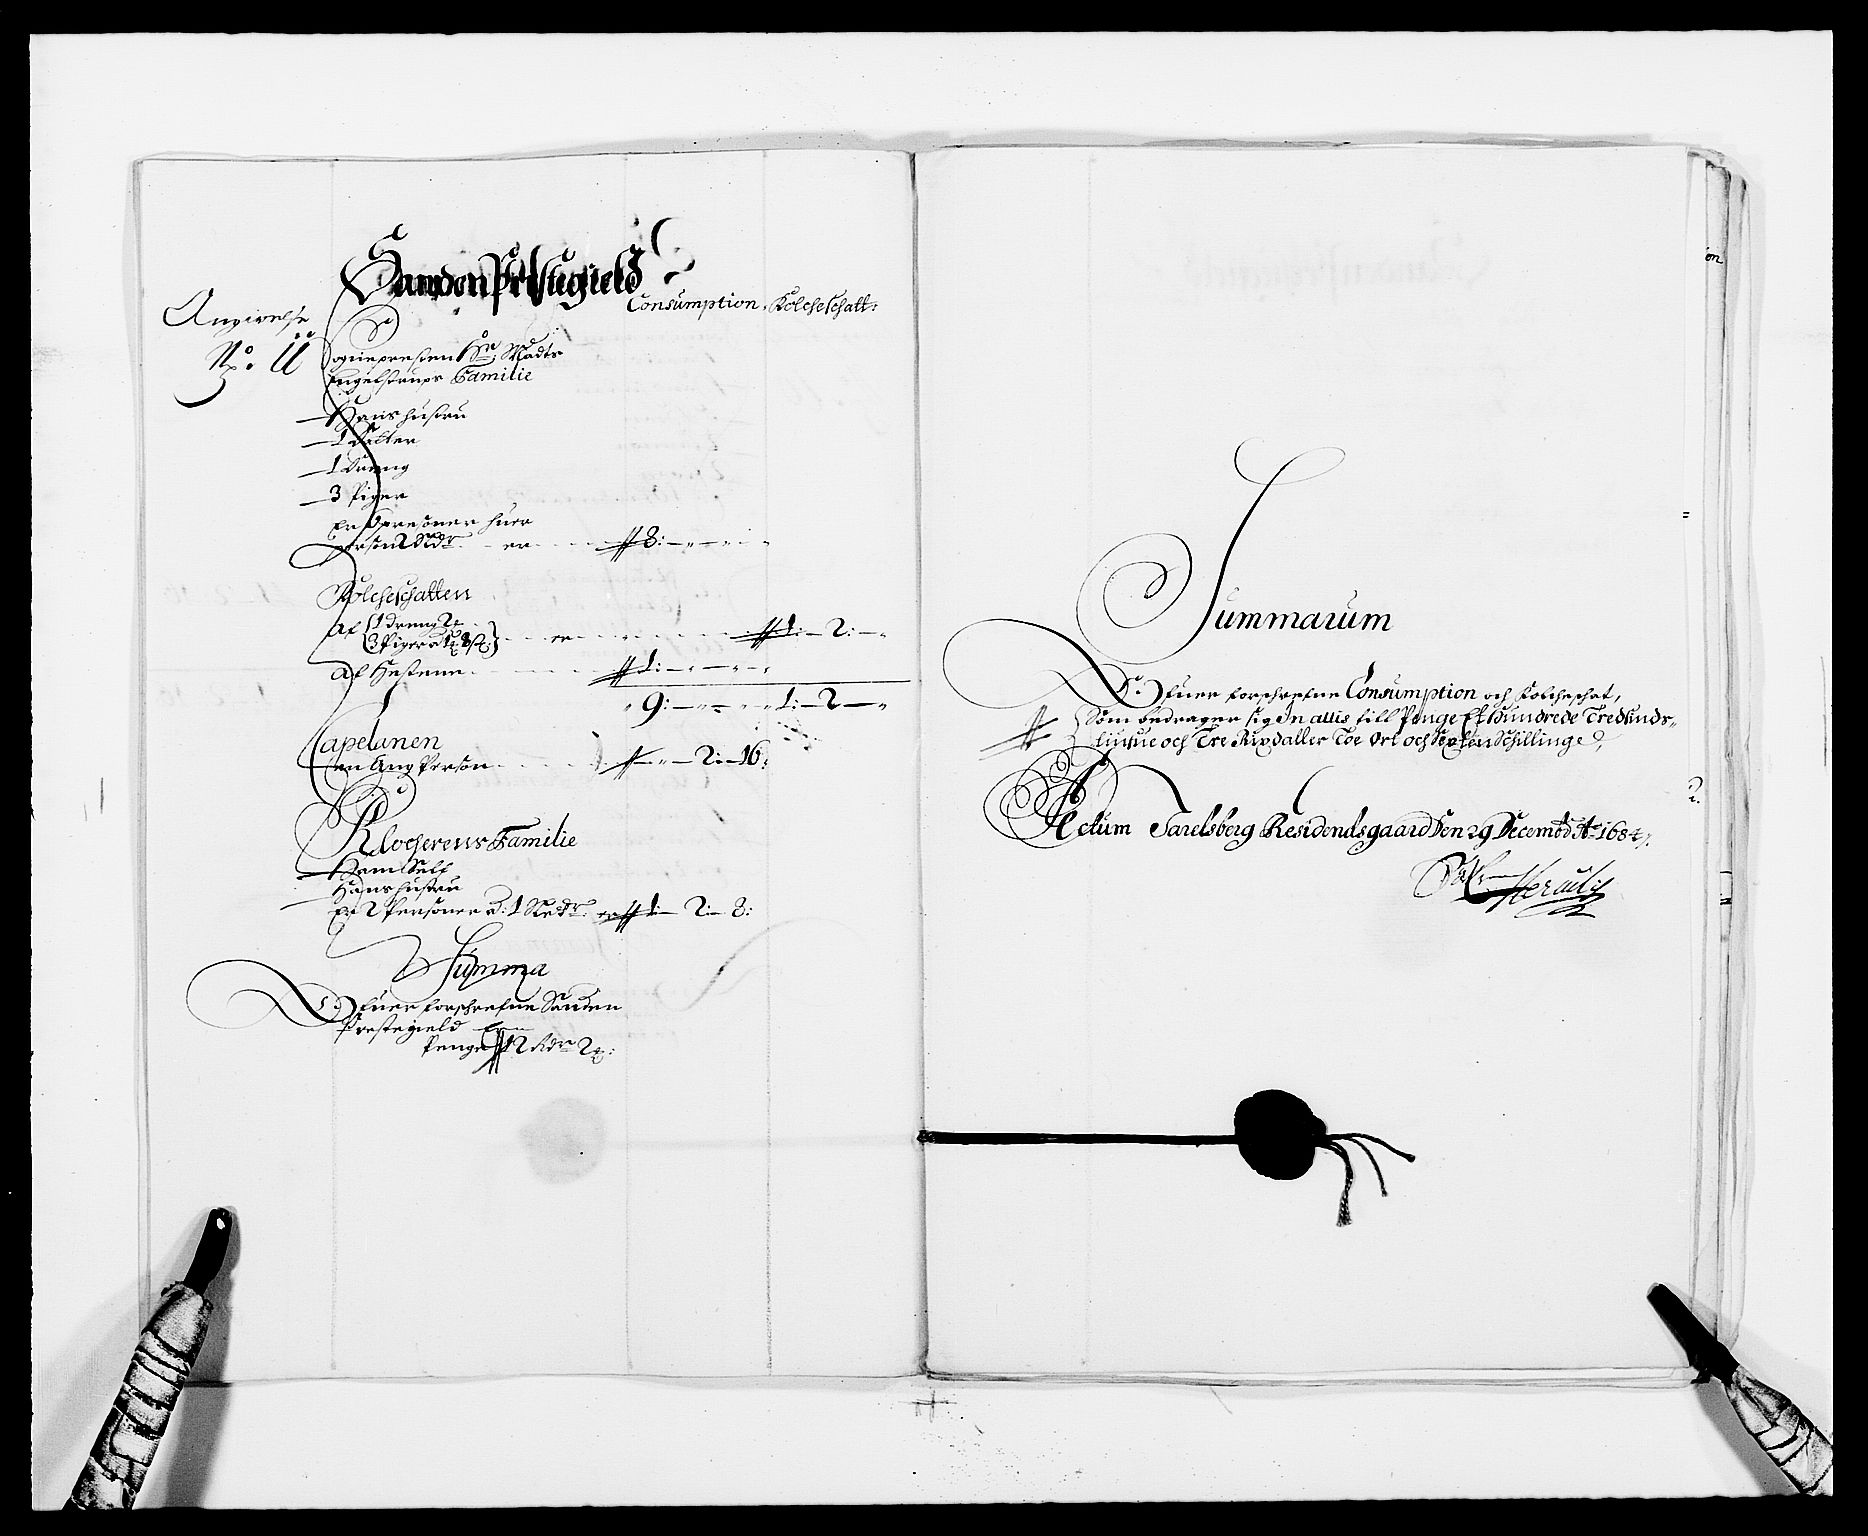 Sanden Prestegield
Consumption. Folcheschatt:
Angivelse
No: 11
Sognepresten Hr: Madts
Engelstrups Familie
Hans hustru
1 Datter
1 Dreng
3 Piger
Er personer huer
person 2 Rdr er 8: — — —
Folcheschatten
Af 1 dreng
3 Piger er 1: 2: —
Af Hestene 1: — — —
9: — — 1: — 2 —
Capelanen
en Ung Person — 2: — 16:
Klocherens Familie
Ham Self
Hans hustru
Er 2 Personer a: 1 er 1: — 2: — 8:
Summa
Ofuer forschrefne Sanden
Prestegield Er
Penge 12 Rdr 2
Summarum
Ofuer forschrefne Consumption och Folcheschat,
Som bedrager sig In allis till Penge Et Hundrede Tredsinds-
tiufue och Tre Rixdaller Toe Ort och Sexten Schillinge,
Actum Jarelsberg Residendsgaard Den 29 Decembr Ao 1684.